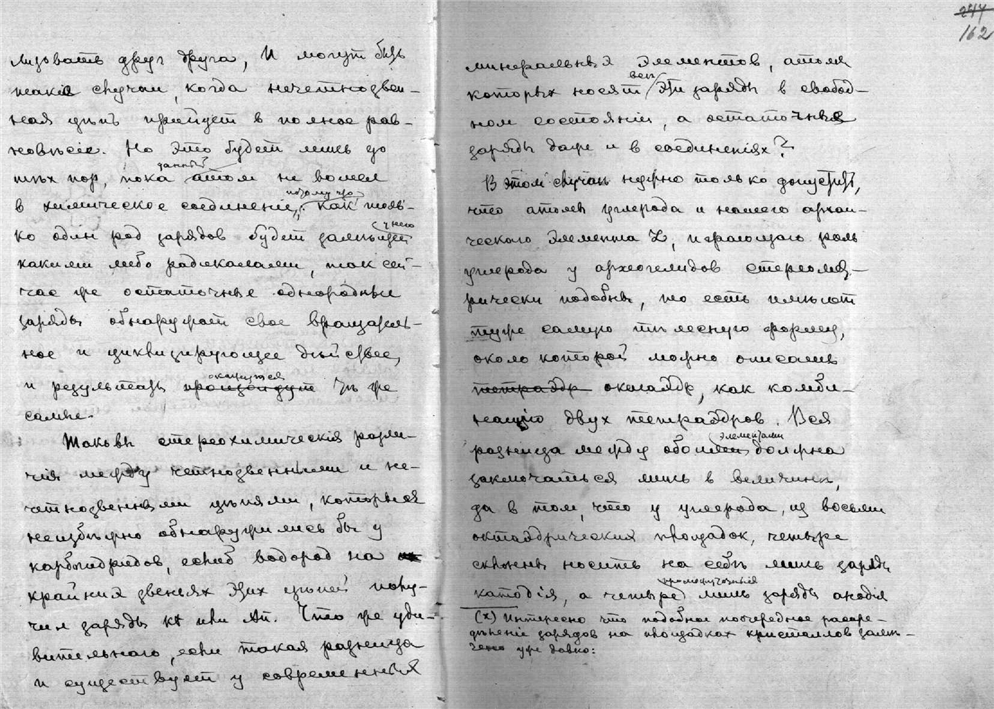 лизовать друг друга, и могут быть
такие случаи, когда нечетнозвен-
ная цѣпь придетъ в полное рав-
новѣсіе. Но это будетъ лишь до
тѣх пор, пока данный атом не вошел
в химическое соединеніе, потому что как толь-
ко один род зарядов будет замѣщен у него
какими либо радикалами, так сей-
час же остаточные однородные
заряды обнаружат свое вращатель-
ное и циклизирующее дѣйствіе,
и результаты произойдут окажутся тѣ же
самые.
Таковы стереохимическія разли-
чія между четнозвенными и не-
четнозвенными цѣпями, которыя
неизбѣжно обнаружились бы у
карбогидридов, еслиб водород на
крайних звеньях этих цѣпей полу-
чил заряды Kt или An. Что же уди-
вительнаго, если такая разница
и существует у современных
244
162
минеральных элементов, атомы
которых носят всѣ эти заряды в свобод-
ном состояніи, а остаточные
заряды даже и в соединеніях?
В этом случаѣ нужно только допустить,
что атомы углерода и нашего архаи-
ческаго элемента Z, играющаго роль
углерода у археогелидов стереомет-
рически подобны, то есть имѣют
туже самую тѣлесную форму,
около которой можно описать
тетраэдр октаэдр, как комби-
націю двух тетраэдров. Вся
разница между обоими элементами должна
заключаться лишь в величинѣ,
да в том, что у углерода, из восьми
октаэдрических площадок, четыре
способны носить на себѣ лишь заряды
катодія, а четыре промежуточныя лишь заряды анодія
(x) Интересно что подобное поочередное распре-
дѣленіе зарядов на площадках кристаллов замѣ-
чено уже давно: